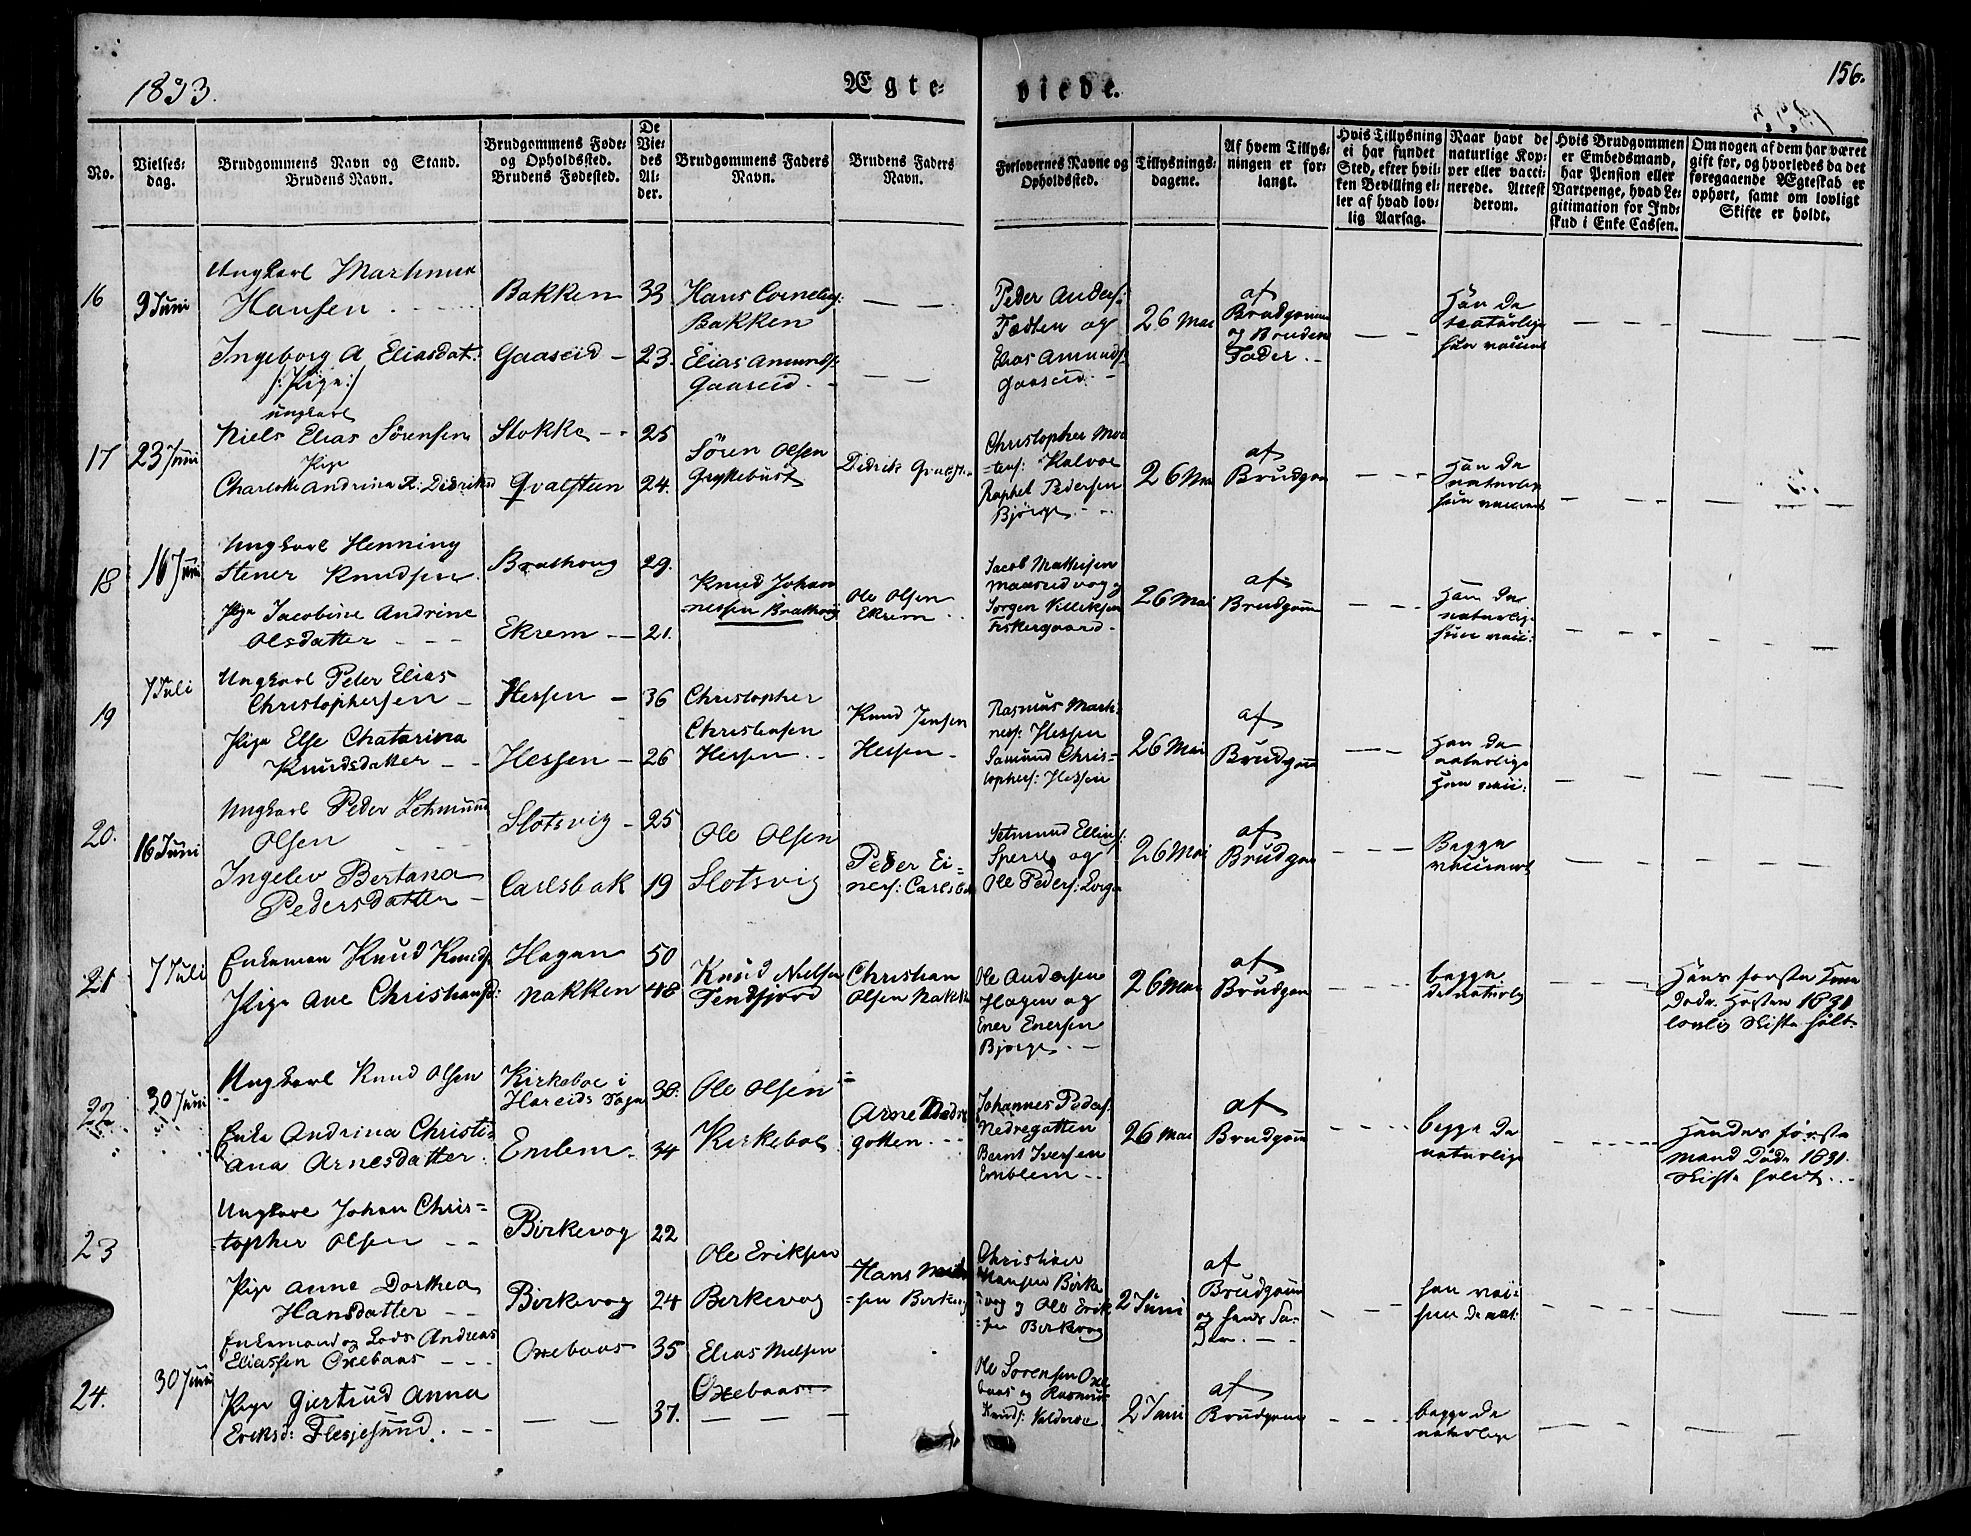 1833.
Ægte-
viede.
156.
No.
Vielses-
dag.
Brudgommens Navn og Stand.
Brudens Navn.
Brudgommens Føde-
og Opholdssted.
Brudens Fødested.
De
Vie-
des
Al-
der.
Brudgommens Faders
Navn.
Brudens Faders
Navn.
Forlovernes Navne og
Opholdssted.
Tillysnings-
dagene.
Af hvem Tillys-
ningen er for-
langt.
Hvis Tillysning
ei har fundet
Sted, efter hvil-
ken Bevilling el-
ler af hvad lov-
lig Aarsag.
Naar havt de
naturlige Kop-
per eller vacci-
nerede. Attest
derom.
Hvis Brudgommen
er Embedsmand,
har Pension eller
Vartpenge, hvad Le-
gitimation for Ind-
skud i Enke Cassen.
Om nogen af dem har været
gift før, og hvorledes da det
foregaaende Ægteskab er
ophørt, samt om lovligt
Skifte er holdt.
16
9 Juni
Ungkarl Martinus
Hansen
Ingeborg A Eliasdat:
/:Pige:/
Bakken
Gaaseid
33
23.
Hans Cornelius:
Bakken
Elias Amunds:
Gaaseid
Peder Anders:
Tædten og
Elias Amunds:
Gaaseid
26 Mai
af
Brudgommen
og Brudens
Fader
Han de
naturlige
hun vaccinert
17
23 Juni
ungkarl
Niels Elias Sörensen
Pige
Andrina A: Didriksd
Stokke
Qvalsteen
25
24.
Sören Olsen
Grÿttebust
Didrik
Christopher Mor
=tens: Kalvoe
Raphel Pedersen
Björge
26 Mai
af
Brudgom
Han de
naturlige
hun vaccinert
18
16 Juni
Ungkarl Henning
Stener Knudsen
Pige Jacobine Andrine
Olsdatter
Brathoug
Ekrem
29.
21.
Knud Johan
=nessen Brathoug
Ole Olsen
Ekrem
Jacob Mathisen
Maaseidvog og
Jörgen Villiksen
Fiskergaard
26 Mai
af
Brudgom
Han de
naturlig
hun vacci:
19
7 Juli
Ungkarl Peter Elias
Christophersen
Pige Else Chatarina
Knudsdatter
Hessen
Hessen
36
26
Christopher
Christensen
Hessen
Knud Jensen
Hessen
Rasmus Mart-
nes: Hessen
Samund Chris=
tophers: Hessen
26 Mai
af
Brudgom
Han de
naturlige
Hun vacci:
20.
16 Juni
Ungkarl Peder Zetmund
Olsen
Ingelev Bertana
Pedersdatter
Slotsvig
Carlsbak
25
19
Ole Olsen
Slotsvig
Peder Ei=
ners: Carlsbak
Setmund Ellings:
Sperre og
Ole Peders:
26 Mai
af
Brudgom
Begge
vaccinert
21
7 Juli
Enkeman Knud Knuds:
Pige Ane Christiansd:
Hagen
Nakken
50
48
Knud Nielsen
Tendfjord
Christian
Olsen Nakken
Ole Andersen
Hagen og
Ener Enersen
Björge
26 Mai
af
Brudgom
begge
de naturlig
Hans förste Kone
Döde Hösten 1831
lovlig Skifte holt
22
30 Juni
Ungkarl Knud Olsen
Enke Andrina Christi=
ana Arnesdatter
Kirkeboe i
Hareids Sogn
Emlem
38.
34
Ole Olsen
Kirkeboe
Arne Nedre
gotten
Johannes Peders:
Nedregatten
Bernt Iversen
Emblem
26 Mai
af
Brudgom
begge de
naturlige
Hendes förste
mand Döde 1831
Skifte holdt
23
Ungkarl Johan Chris=
=topher Olsen
Pige Anne Dorthea
Hansdatter
Birkevog
Birkevog
22
24
Ole Eriksen
Birkevog
Hans
=sen Birkevog
Christian
Hansen Birke
=vog og Ole Erik
=sen Birkevog
2 Juni
af
Brudgom
og hans Fa-
der
han vaci-
hun de nat:
24.
30 Juni
Enkemand og Lods Andreas
Eliassen Oxebaas
Pige Giertrud Anna
Eriksd: Flesjesund
Oxebaas
35
37.
Elias Nielsen
Oxebaas
Ole Sorensen Oxe
baas og Rasmus
Knuds: Valderoe
2 Juni
af
Brudgom
begge de
naturlige